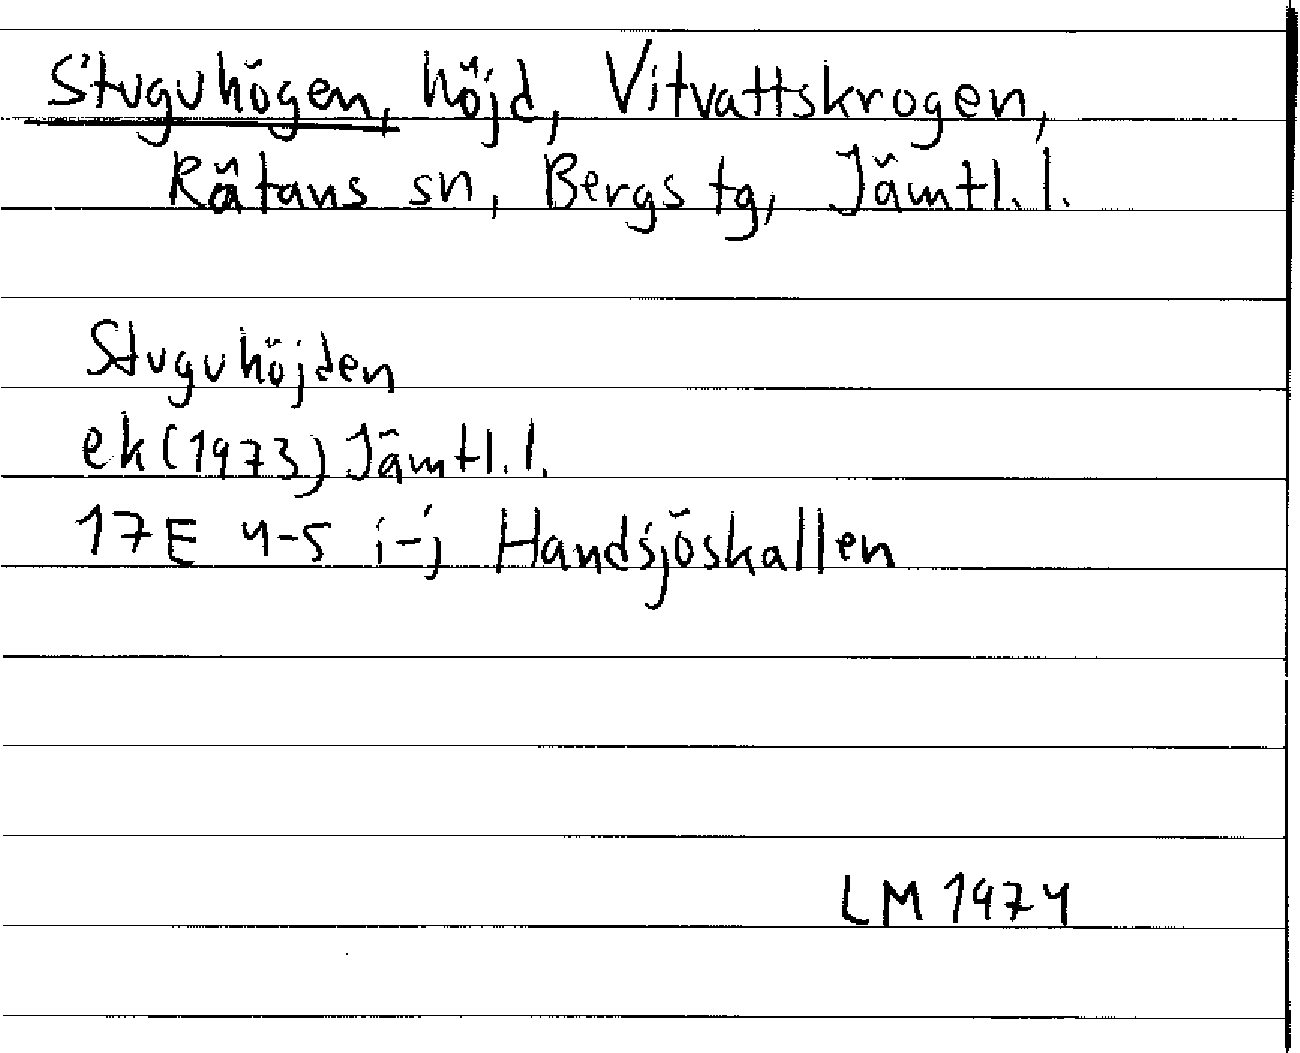 Stuguhögen, höjd, Vitvattskrogen,
Rätans sn, Bergs tg, Jämtl. l.
Stuguhöjden
ek (1973) Jämtl. l.
17E 4-5 i-j Handsjöskallen
LM 1974